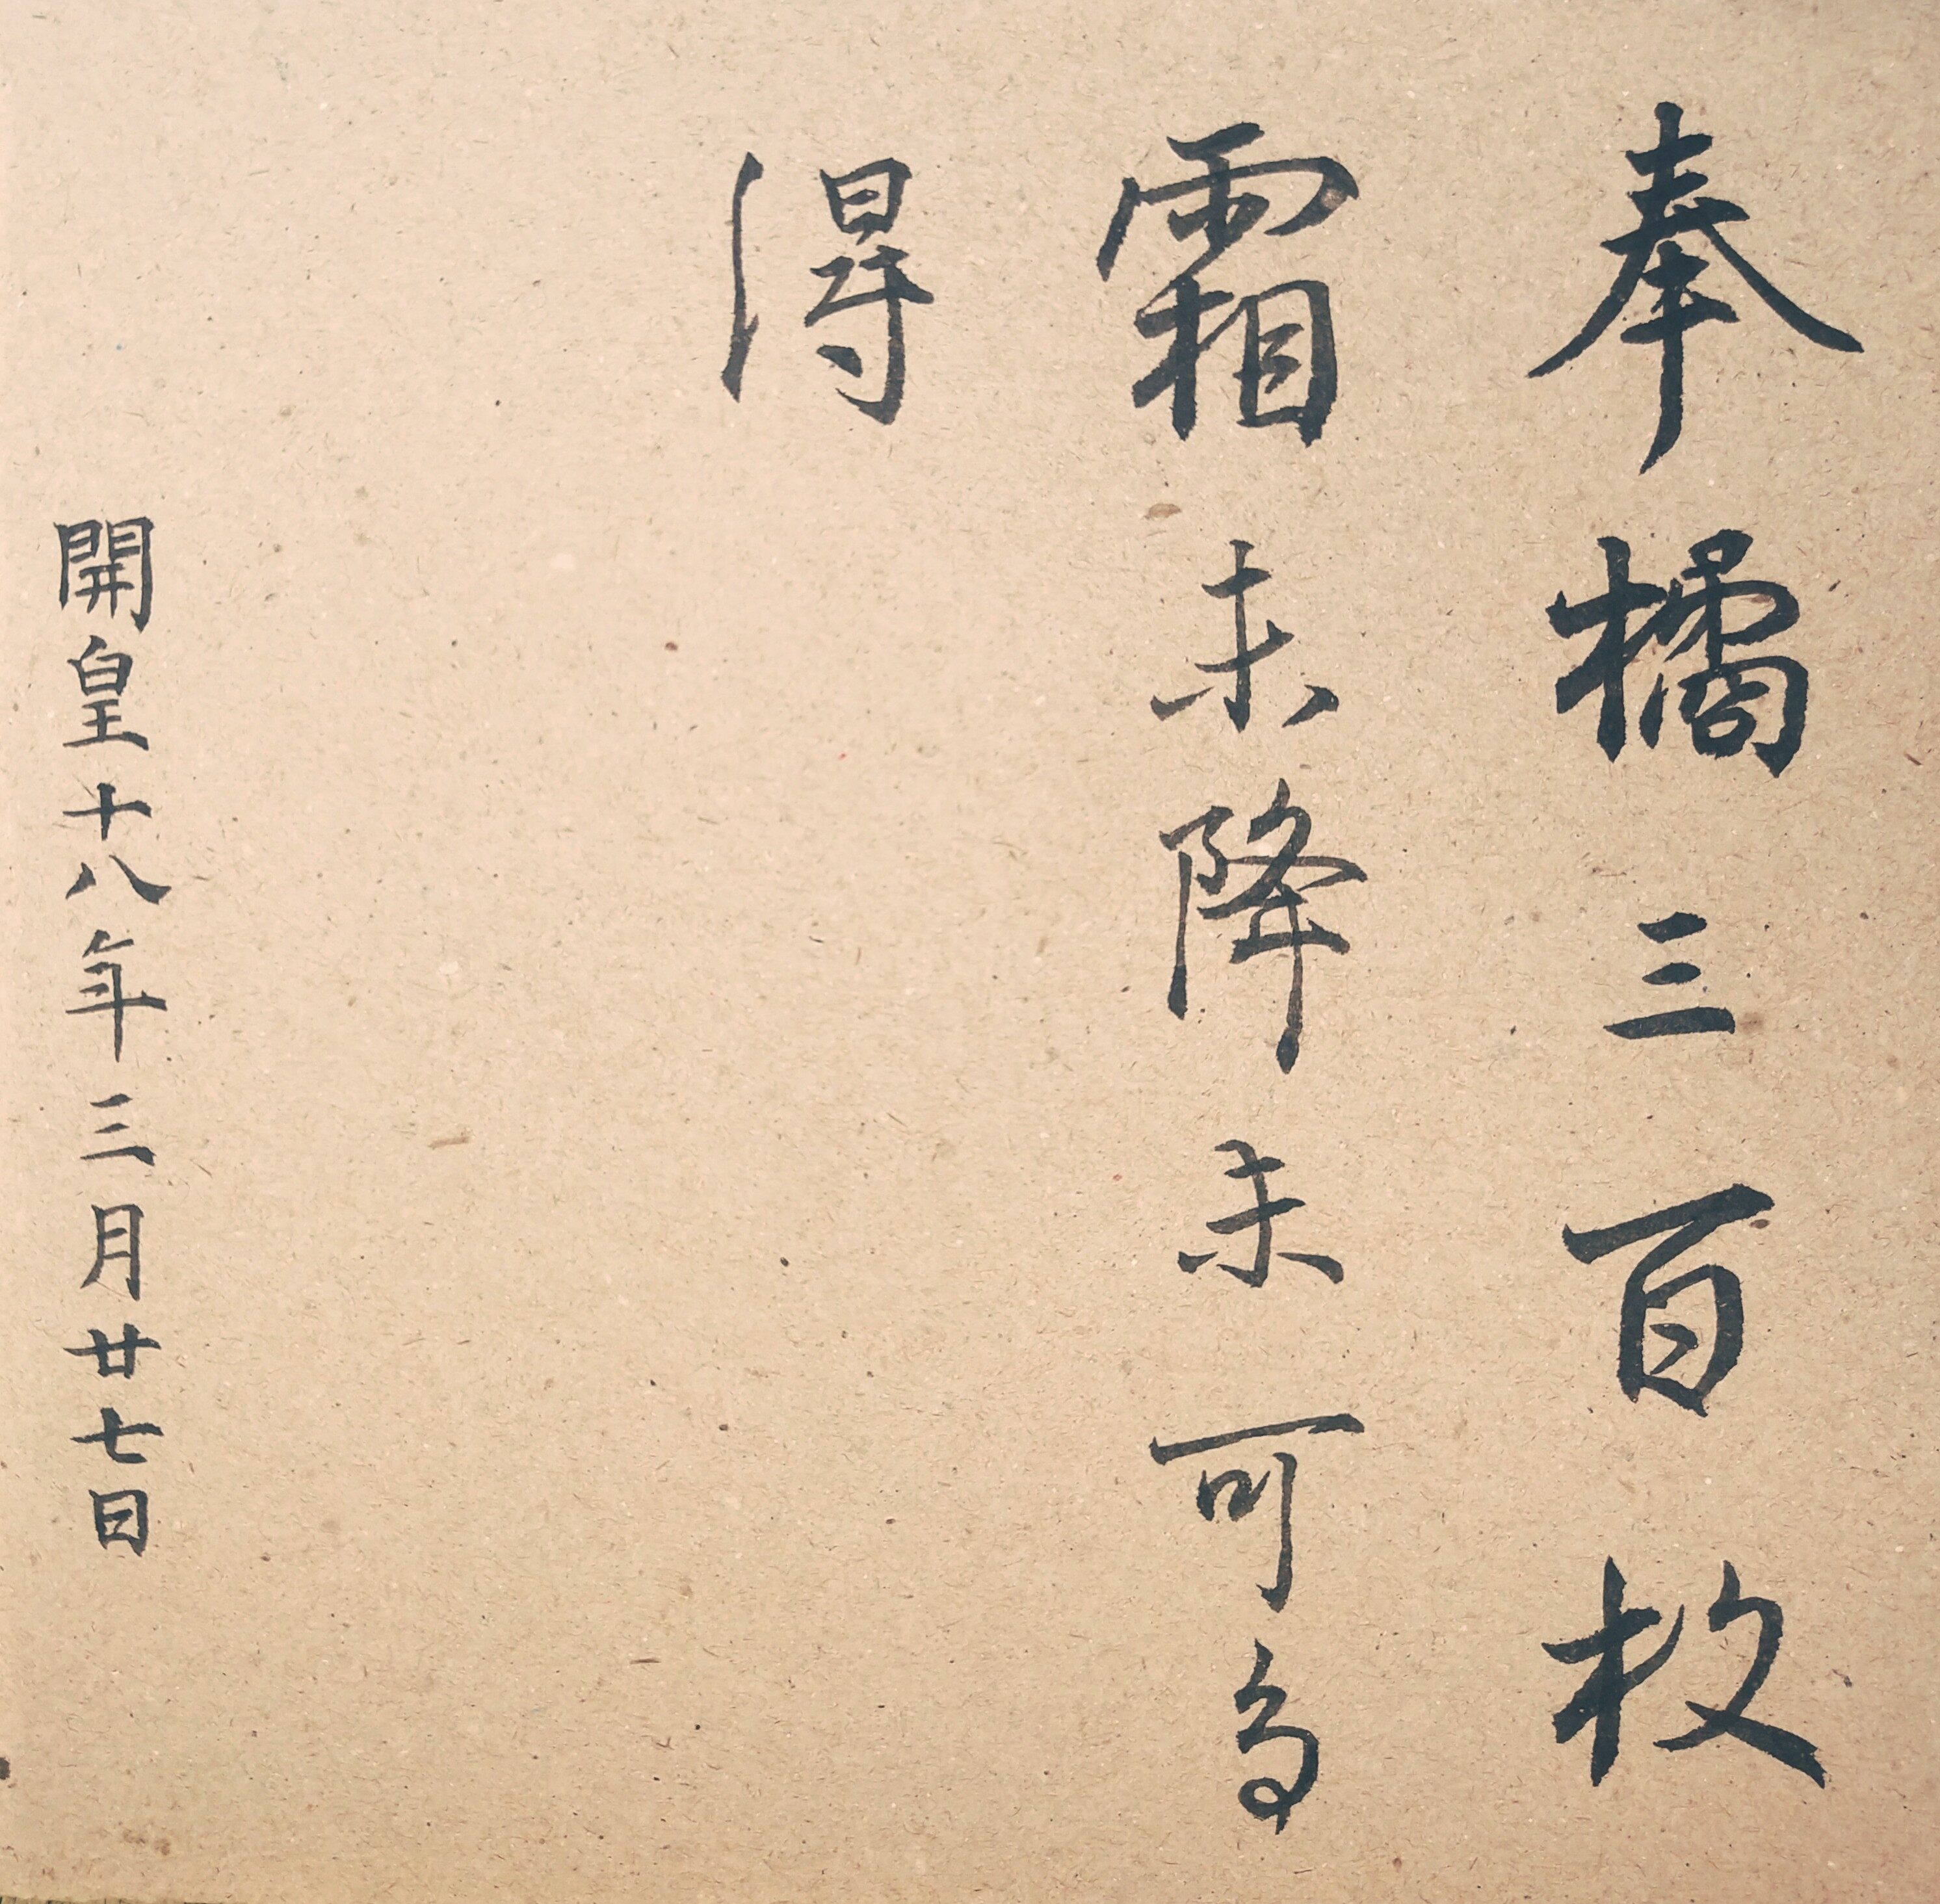 奉橘三百枚
霜未降未可多
得
開皇十八年三月廿七日